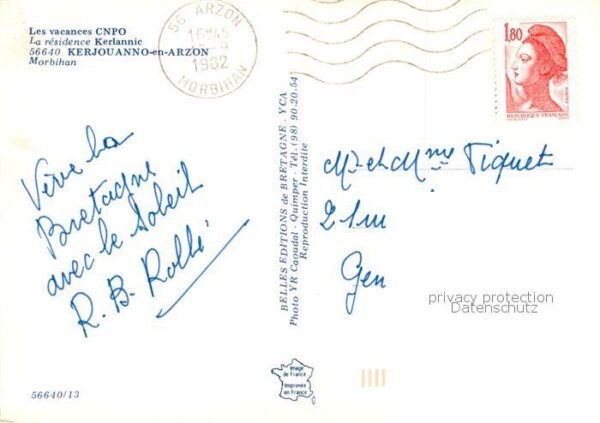 Les vacances CNPO
La résidence Kerlannic
56640 KERJOUANNO-en-ARZON
Morbihan
56 ARZON
16H45
1982
MORBIHAN
1,80
REPUBLIQUE FRANÇAISE
Vive la
Bretagne
avec le Soleil
R. B. Rollé
BELLES EDITIONS de BRETAGNE YCA
Photo YR Caoudal - Quimper - Tél. (98) 90.20.54
Reproduction Interdite
Mr et Mme Piquet
21
Gen
privacy protection
Datenschutz
Image
de France
Imprimée
en France
56640/13